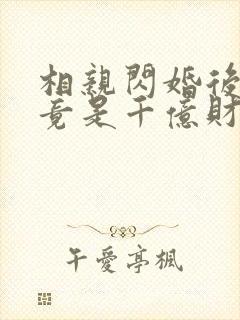 相親閃婚後
竟是千億財
午愛亭楓